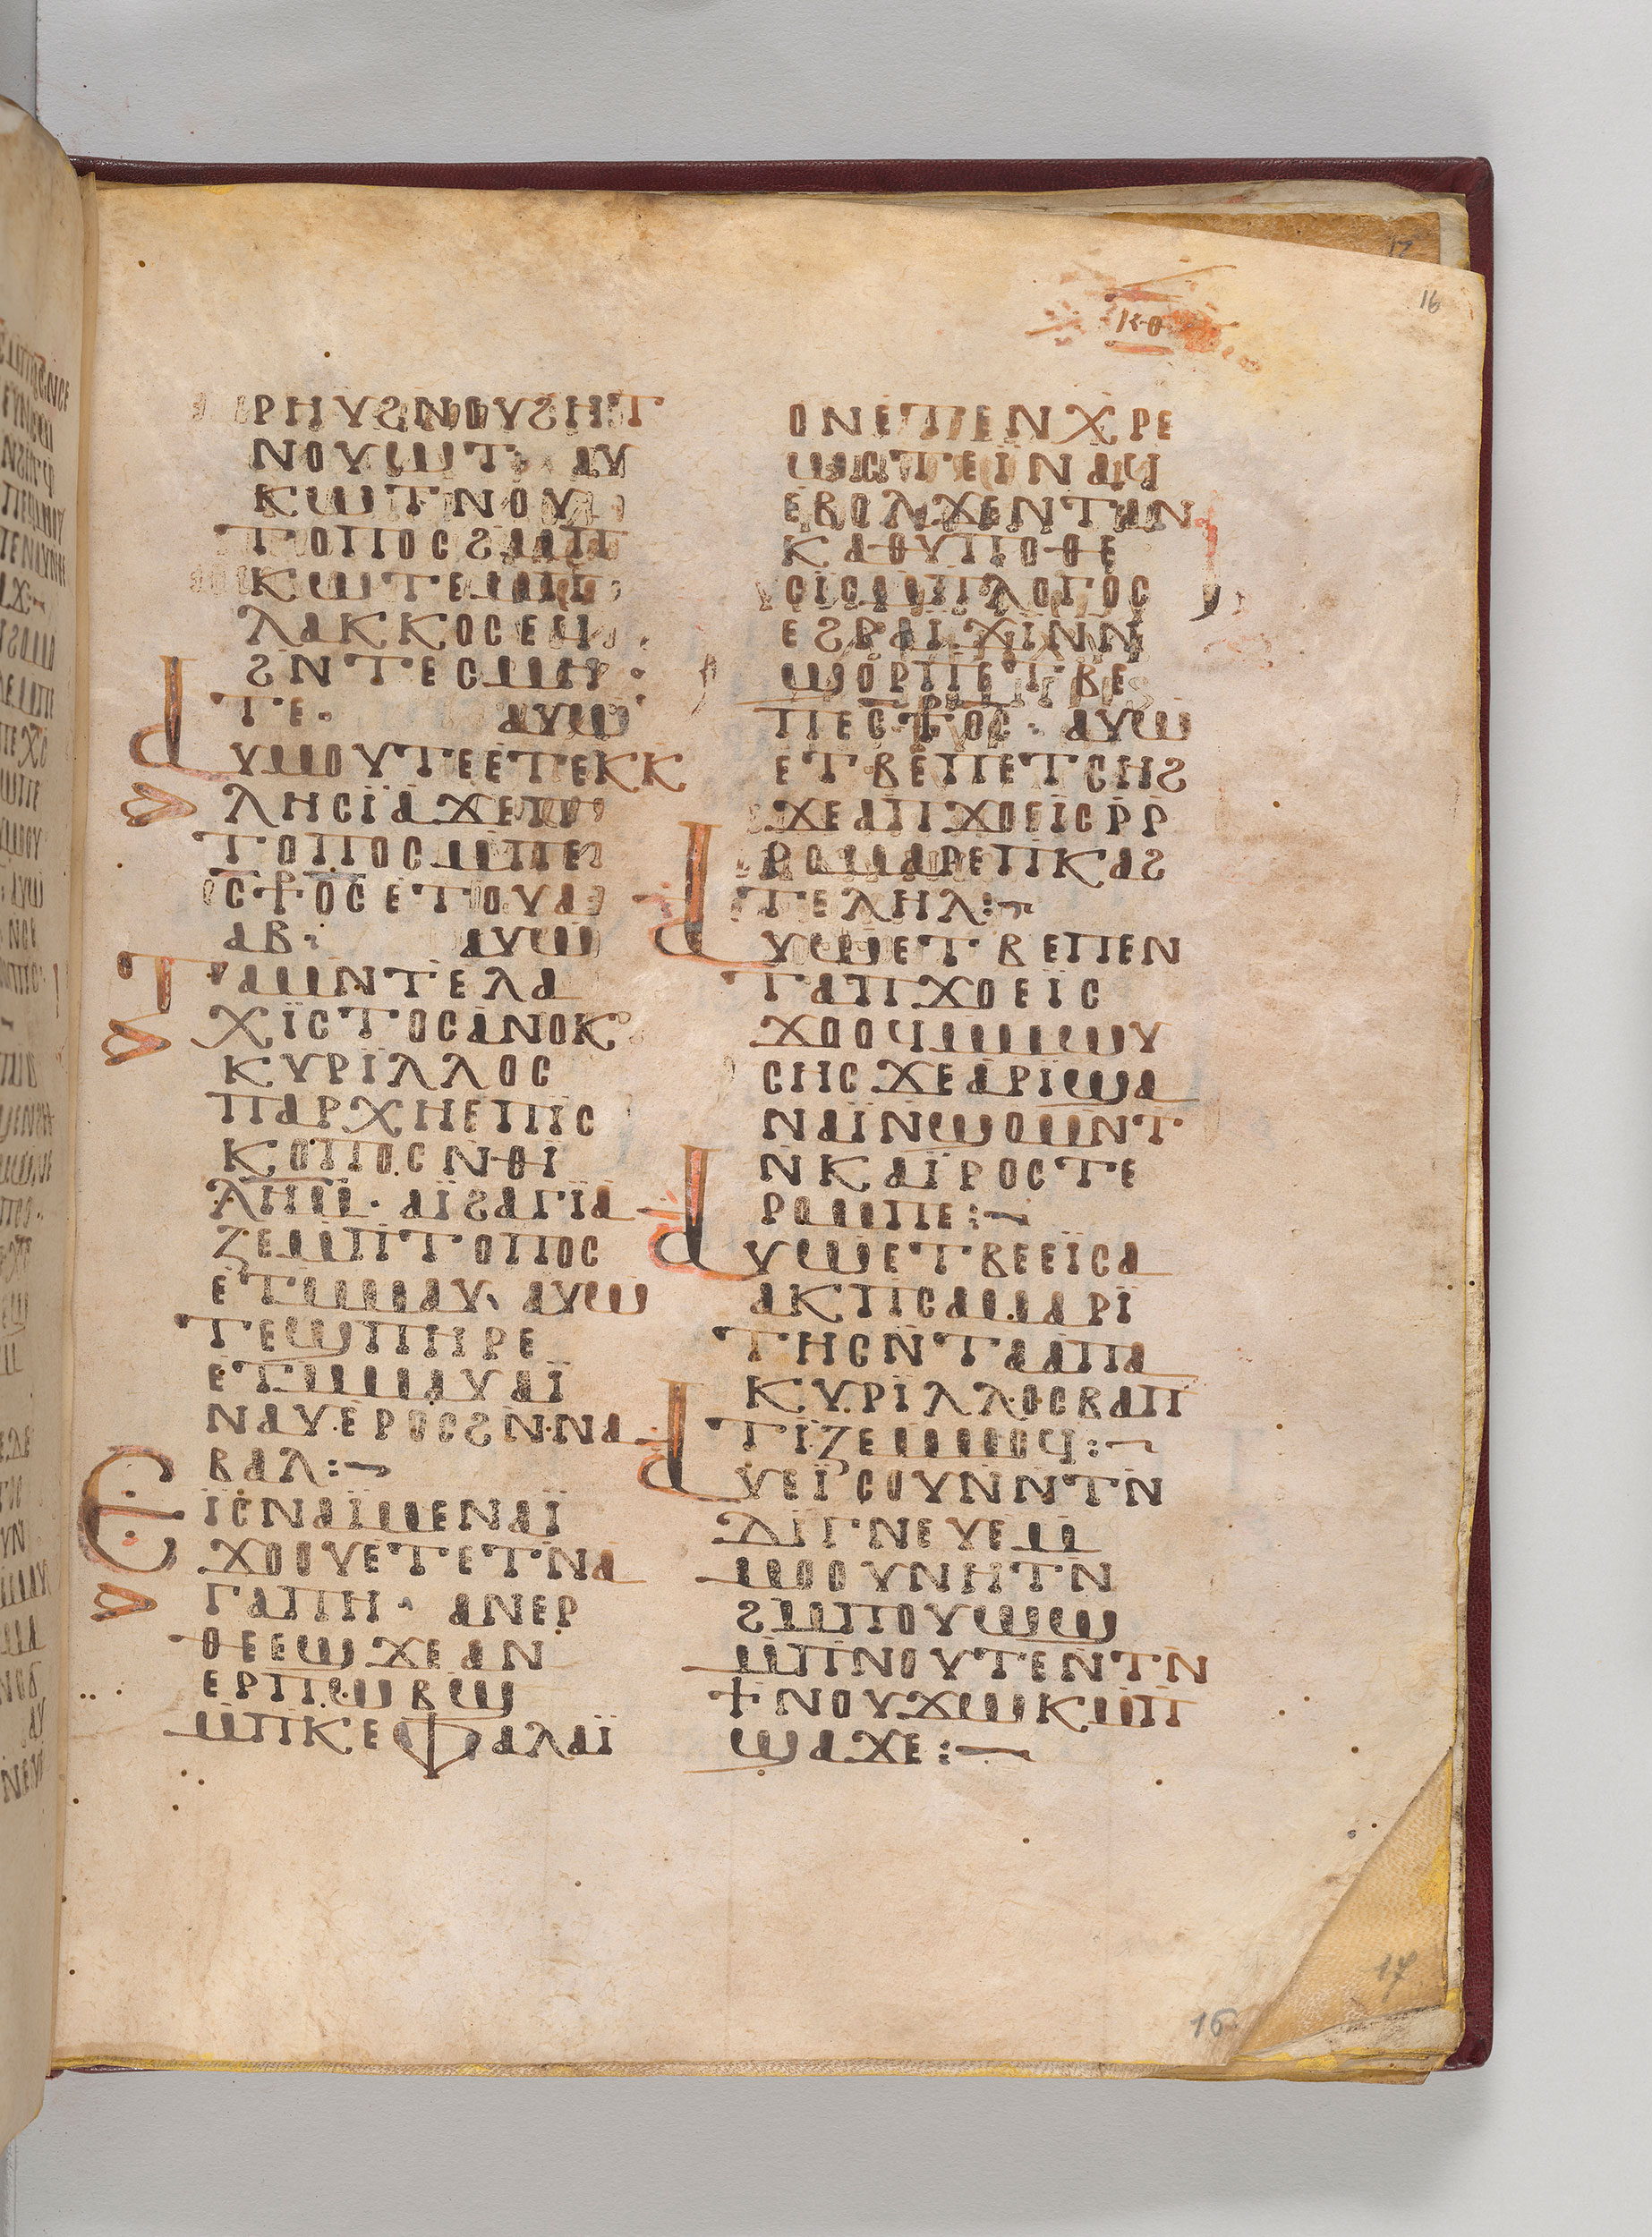 16
ⲕⲑ
ⲣⲏⲩϩⲛⲟⲩϩⲏⲧ
ⲛⲟⲩⲱⲧ· ⲁⲩ
ⲕⲱⲧⲛⲟⲩ
ⲧⲟⲡⲟⲥϩⲙⲡ
ⲕⲱⲧⲉⲙⲡ
ⲗⲁⲕⲕⲟⲥⲉϥ
ϩⲛⲧⲉⲥⲙⲏ
ⲧⲉ· ⲁⲩⲱ
ⲁⲩⲙⲟⲩⲧⲉⲉⲧⲉⲕⲕ
ⲗⲏⲥⲓ̈ⲁϫⲉⲡ
ⲧⲟⲡⲟⲥⲙⲡⲉ
ⲥ⳨ⲟⲥⲉⲧⲟⲩⲁ
ⲁⲃ: ⲁⲩⲱ
ⲧⲁⲙⲛⲧⲉⲗⲁ
ⲭⲓ̈ⲥⲧⲟⲥⲁⲛⲟⲕ
ⲕⲩⲣⲓⲗⲗⲟⲥ
ⲡⲁⲣⲭⲏⲉⲡⲓⲥ
ⲕⲟⲡⲟⲥⲛⲑⲓ
ⲗⲏⲙ· ⲁⲓ̈ϩⲁⲅⲓ̈ⲁ
ⲍⲉⲙⲡⲓⲧⲟⲡⲟⲥ
ⲉⲧⲙⲙⲁⲩ· ⲁⲩⲱ
ⲧⲉϣⲡⲏⲣⲉ
ⲉⲧⲙⲙⲁⲩⲁⲓ̈
ⲛⲁⲩⲉⲣⲟⲥϩⲛⲛⲁ
ⲃⲁⲗ:⁓
ⲉⲓ̈ⲥⲛⲁⲓ̈ⲙⲉⲛⲁⲓ̈
ϫⲟⲟⲩⲉⲧⲉⲧⲛⲁ
ⲅⲁⲡⲏ· ⲁⲛⲉⲣ
ⲑⲉⲉϣϫⲉⲁⲛ
ⲉⲣⲡⲱⲃϣ
ⲙⲡⲕⲉⲫⲁⲗⲁⲓ̈
ⲟⲛⲉⲧⲉⲛⲭⲣⲉ
ⲱⲥⲧⲉⲓ̈ⲛⲁϥ
ⲉⲃⲟⲗϫⲉⲛⲧⲁⲛ
ⲕⲁⲑⲩⲡⲟⲑⲉ
ⲥⲓⲥⲙⲡⲗⲟⲅⲟⲥ
ⲉϩⲣⲁⲓϫⲓⲛⲛ
ϣⲟⲣⲡⲉⲧⲃⲉ
ⲡⲉⲥ⳨ⲟⲥ· ⲁⲩⲱ
ⲉⲧⲃⲉⲡⲉⲧⲥⲏϩ
ϫⲉⲁⲡϫⲟⲉⲓⲥⲣⲣ
ⲣⲟⲙⲁⲣⲉⲡⲕⲁϩ
ⲧⲉⲗⲏⲗ:⁓
ⲁⲩⲱⲉⲧⲃⲉⲡⲉⲛ
ⲧⲁⲡϫⲟⲉⲓ̈ⲥ
ϫⲟⲟϥⲙⲙⲱⲩ
ⲥⲏⲥϫⲉⲁⲣⲓϣⲁ
ⲛⲁⲓ̈ⲛϣⲟⲙⲛⲧ
ⲛⲕⲁⲓ̈ⲣⲟⲥⲧⲉ
ⲣⲟⲙⲡⲉ:⁓
ⲁⲩⲱⲉⲧⲃⲉⲉⲓ̈ⲥⲁ
ⲁⲕⲡⲥⲁⲙⲁⲣⲓ
ⲧⲏⲥⲛⲧⲁⲁⲡⲁ
ⲕⲩⲣⲓ̈ⲗⲗⲟⲥⲃⲁⲡ
ⲧⲓ̈ⲍⲉⲙⲙⲟϥ:⁓
ⲁⲩⲉⲓ̈ⲥⲟⲩⲛⲛⲧⲛ
ⲁⲓ̈ⲅⲛⲉⲩⲉⲙ
ⲙⲟⲟⲩⲛⲏⲧⲛ
ϩⲙⲡⲟⲩⲱϣ
ⲙⲡⲛⲟⲩⲧⲉⲛⲧⲛ
ϯⲛⲟⲩϫⲱⲕⲙⲡ
ϣⲁϫⲉ:⁓
16
17